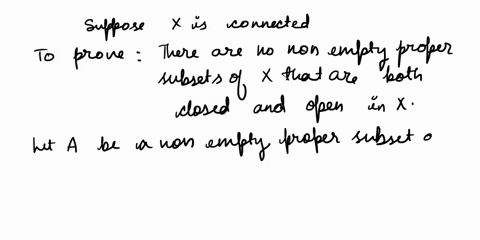 Suppose X is connected
To prove : There are no non empty proper
subsets of X that are both
closed and open in X.
Let A be a non empty proper subset o